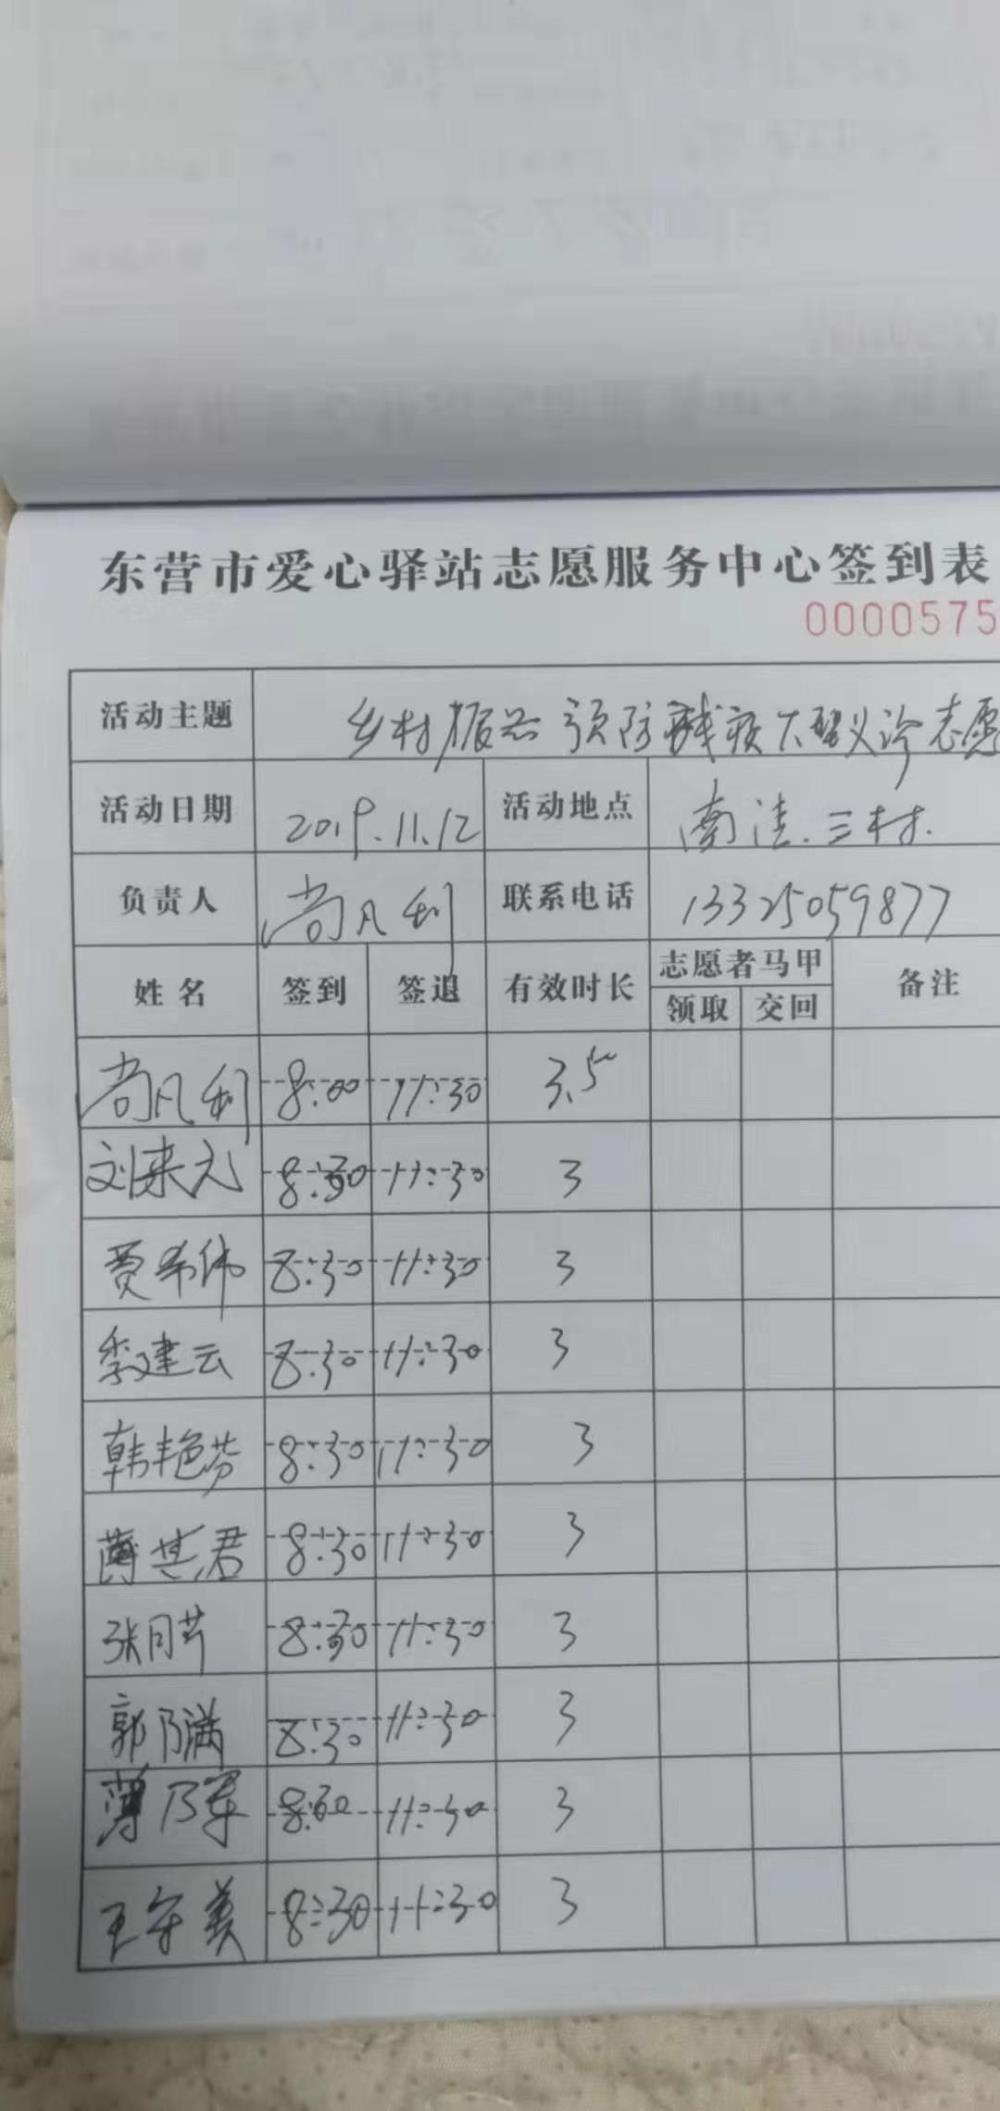 东营市爱心驿站志愿服务中心签到表
0000575
活动主题 乡村振兴 预防残疾大型义诊志愿
活动日期 2019.11.12 活动地点 南洼.三村.
负责人 尚凡利 联系电话 13325059877
姓名 签到 签退 有效时长 志愿者马甲 备注
领取 交回
尚凡利 8:00 11:30 3.5
刘来元 8:30 11:30 3
贾希伟 8:30 11:30 3
季建云 8:30 11:30 3
韩艳芬 8:30 11:30 3
薄其君 8:30 11:30 3
张月芹 8:30 11:30 3
郭乃满 8:30 11:30 3
薄乃军 8:30 11:30 3
王守美 8:30 11:30 3